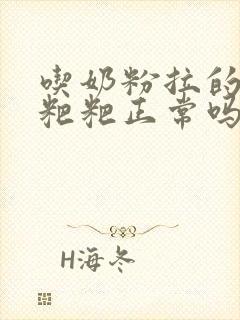 喫奶粉拉的
粑粑正常吗
H海冬